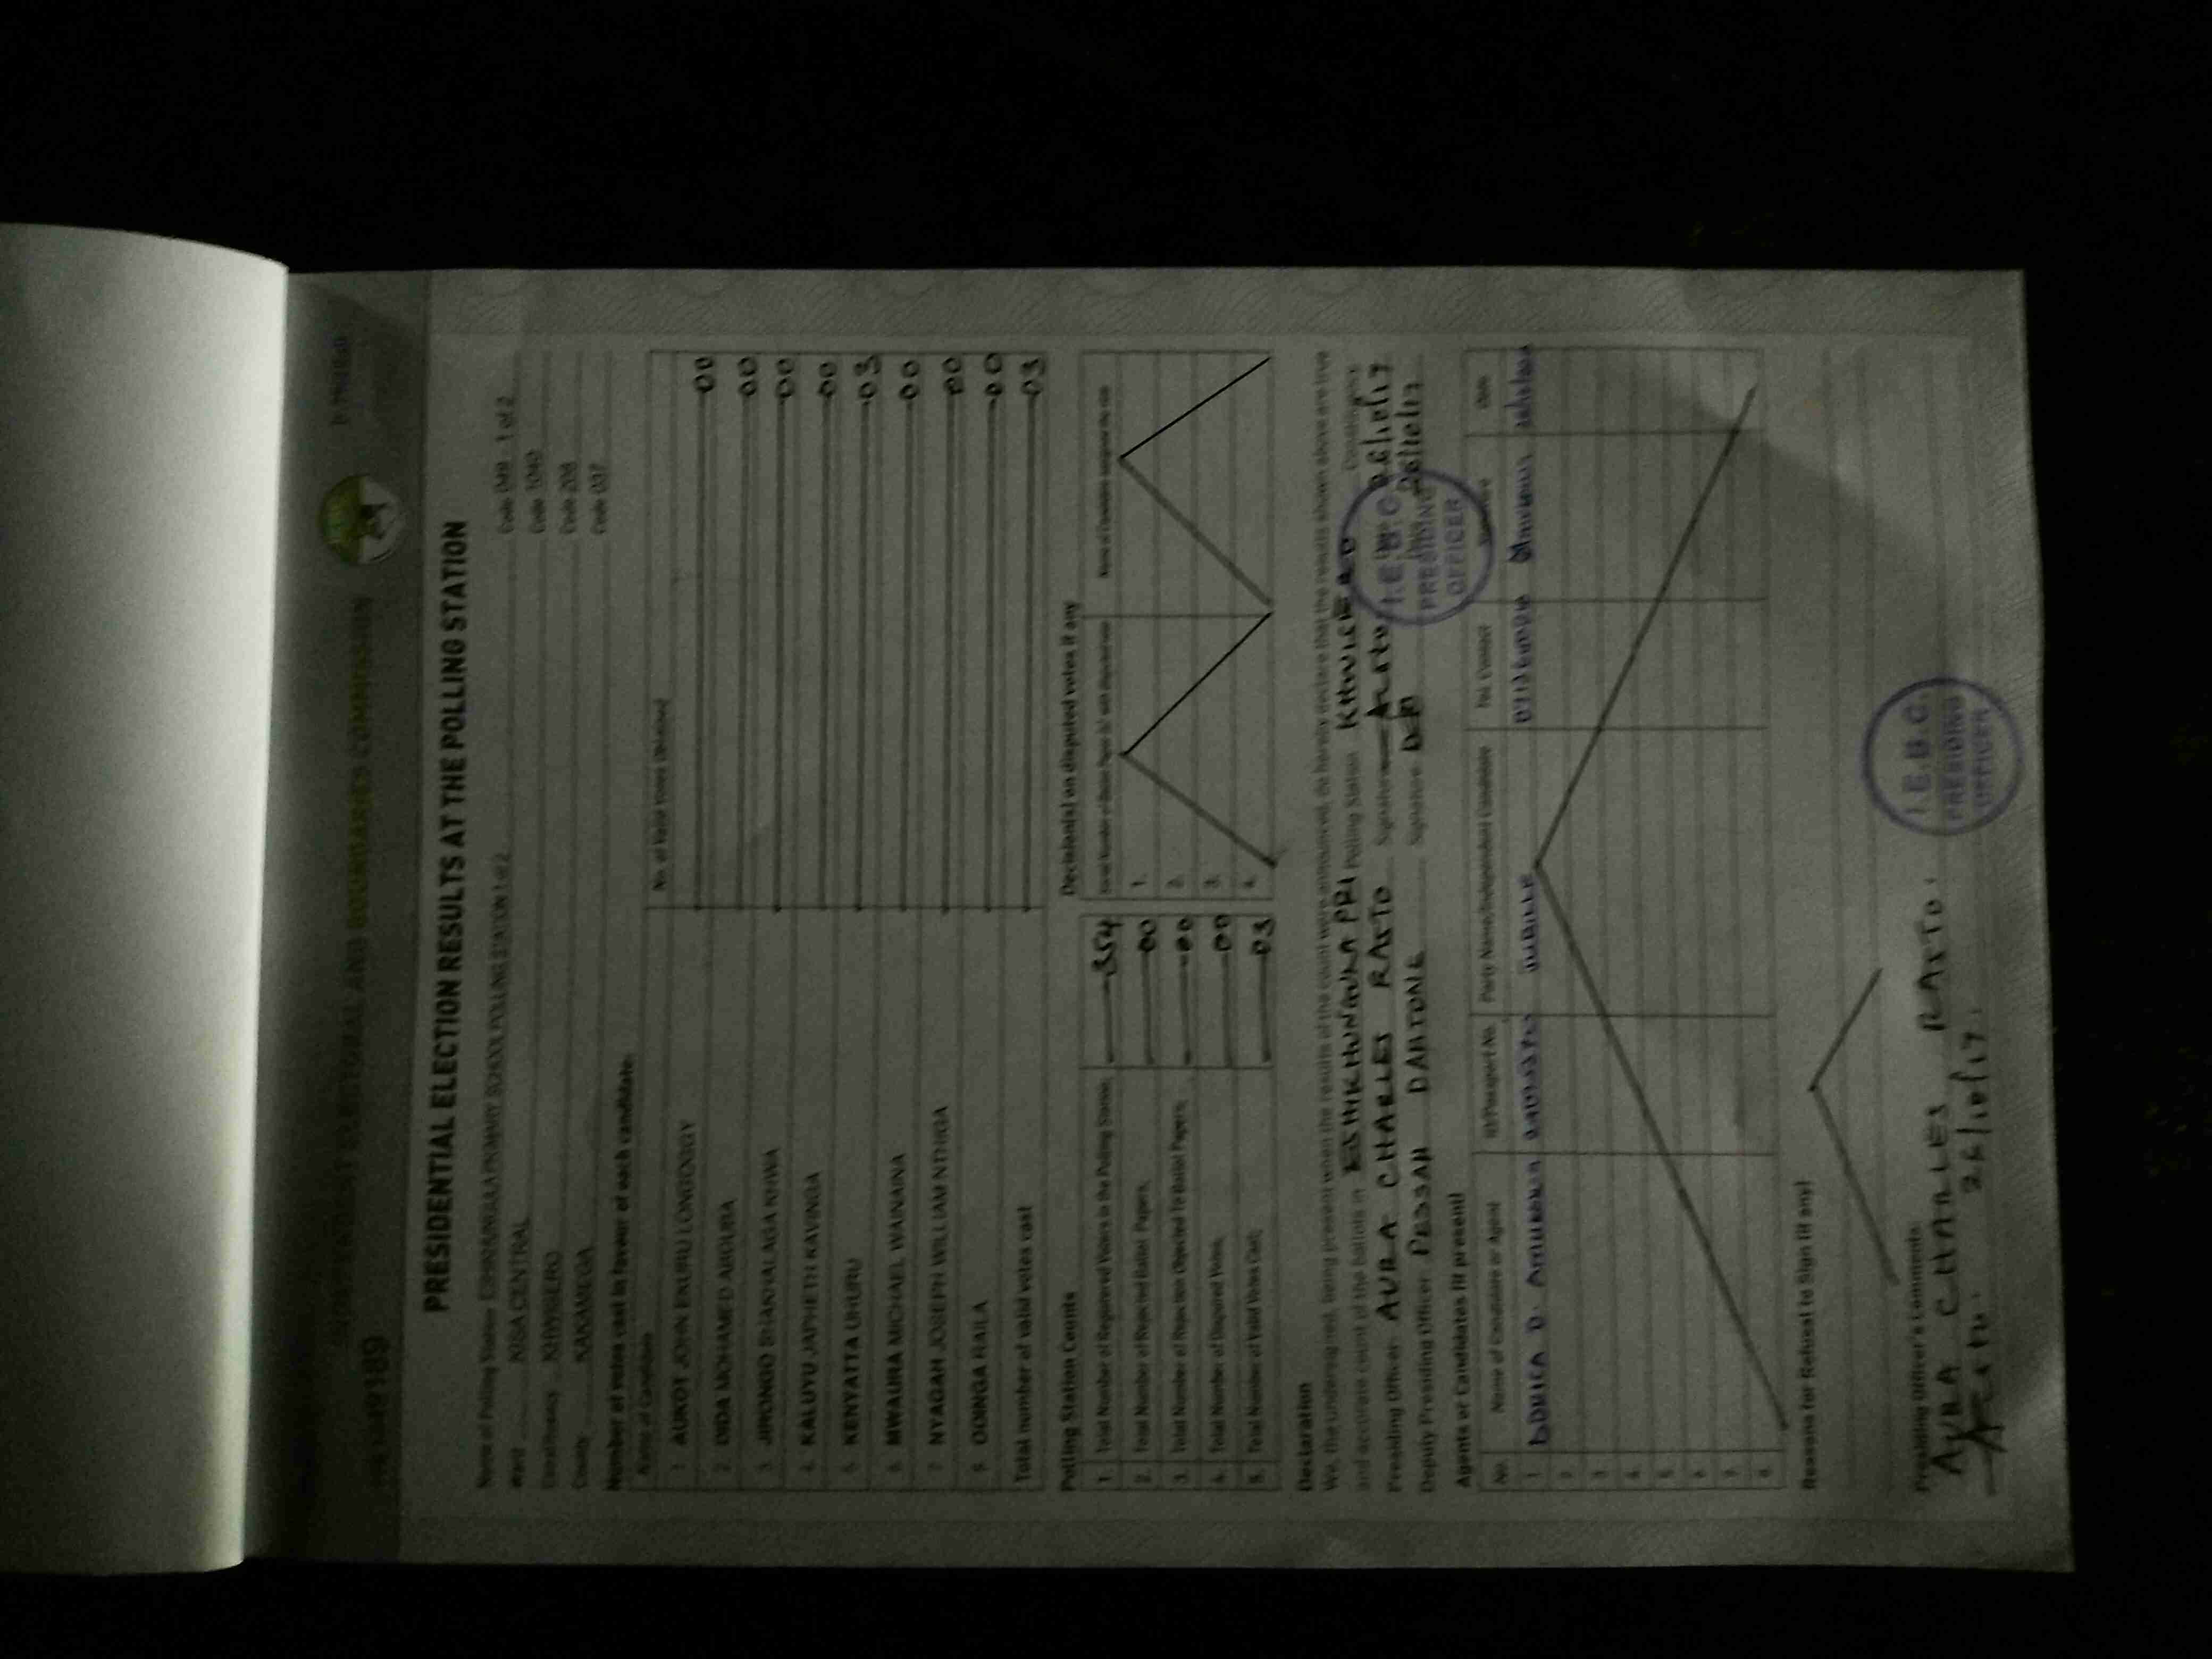 INDEPENDENT ELECTORAL AND BOUNDARIES COMMISSION
PRESIDENTIAL ELECTION RESULTS AT THE POLLING STATION
Name of Polling Station ESHIKHUNGULA PRIMARY SCHOOL POLLING STATION 1 of 2 Code 049 1 of 2
Ward KISA CENTRAL Code 1040
Constituency KHWISERO Code 208
County KAKAMEGA Code 037
Number of votes cast in favour of each candidate
Name of Candidate No. of Valid Votes Obtained
1 AUKOT JOHN EKURU LONGOGGY 00
2 DIDA MOHAMED ABDUBA 00
3 JIRONGO SHAKHALAGA KHWA 00
4 KALUYU JAPHETH KAVINGA 00
5 KENYATTA UHURU 03
6 MWAURA MICHAEL WAINAINA 00
7 NYAGAH JOSEPH WILLIAM NTHIGA 00
8 ODINGA RAILA 00
Total number of valid votes cast 03
Polling Station Counts
1 Total Number of Registered Voters in the Polling Station 354
2. Total Number of Rejected Ballot Papers 00
3. Total Number of Rejection Objected To Ballot Papers 00
4. Total Number of Disputed Votes 00
5. Total Number of Valid Votes Cast 03
Decision(s) on disputed votes if any
1.
2.
3.
4.
Declaration
We, the undersigned, being present when the results of the count were announced, do hereby declare that the results shown above are true
and accurate count of the ballots in Polling Station KHWISERO Constituency
Presiding Officer AURA CHARLES RASTO Signature Date
Deputy Presiding Officer DANTONE Signature Date
I.E.B.C.
PRESIDING
OFFICER
Agents or Candidates (if present)
No. Name of Candidate or Agent ID/Passport No. Party Name/Independent Candidate Tel. Contact Signature Date
1 JUBILEE
2
3
4
5
6
7
8
Reasons for Refusal to Sign (if any)
Presiding Officer's Comments
AURA CHARLES RASTO.
26/10/17.
I.E.B.C.
PRESIDING
OFFICER